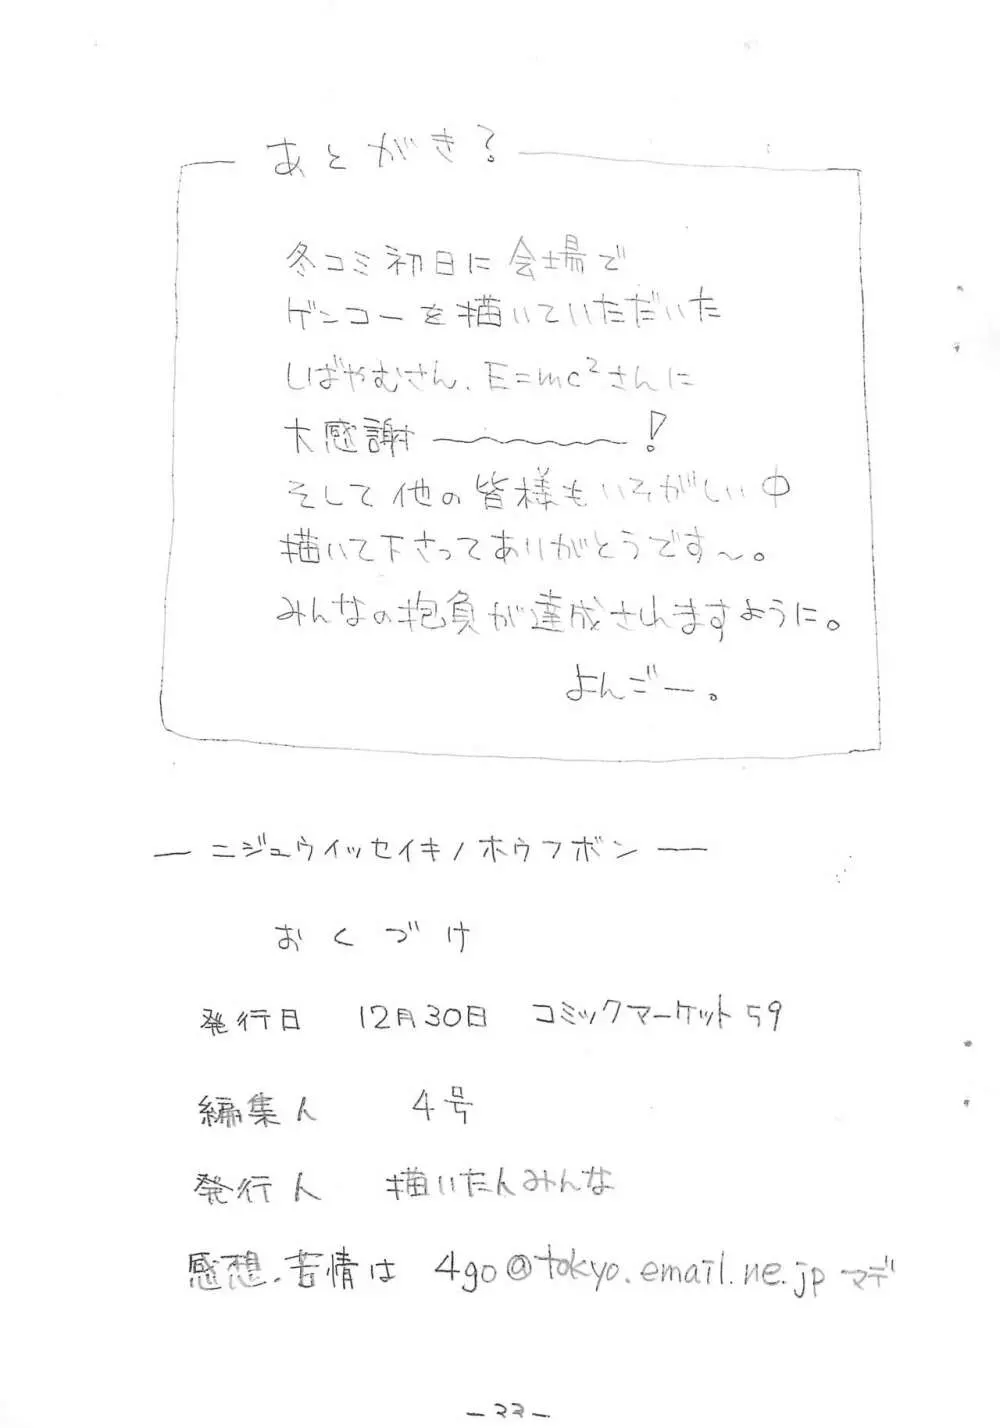 あとがき?
冬コミ初日に会場で
ゲンコーを描いていただいた
しばやむさん、E=mc²さんに
大感謝〜〜〜〜〜!
そして他の皆様もいそがしい中
描いて下さってありがとうです〜。
みんなの抱負が達成されますように。
よんごー。
ー ニジュウイッセイキノホウフボン ー
おくづけ
発行日 12月30日 コミックマーケット59
編集人 4号
発行人 描いたんみんな
感想、苦情は 4go@tokyo.email.ne.jp マデ
- 33 -